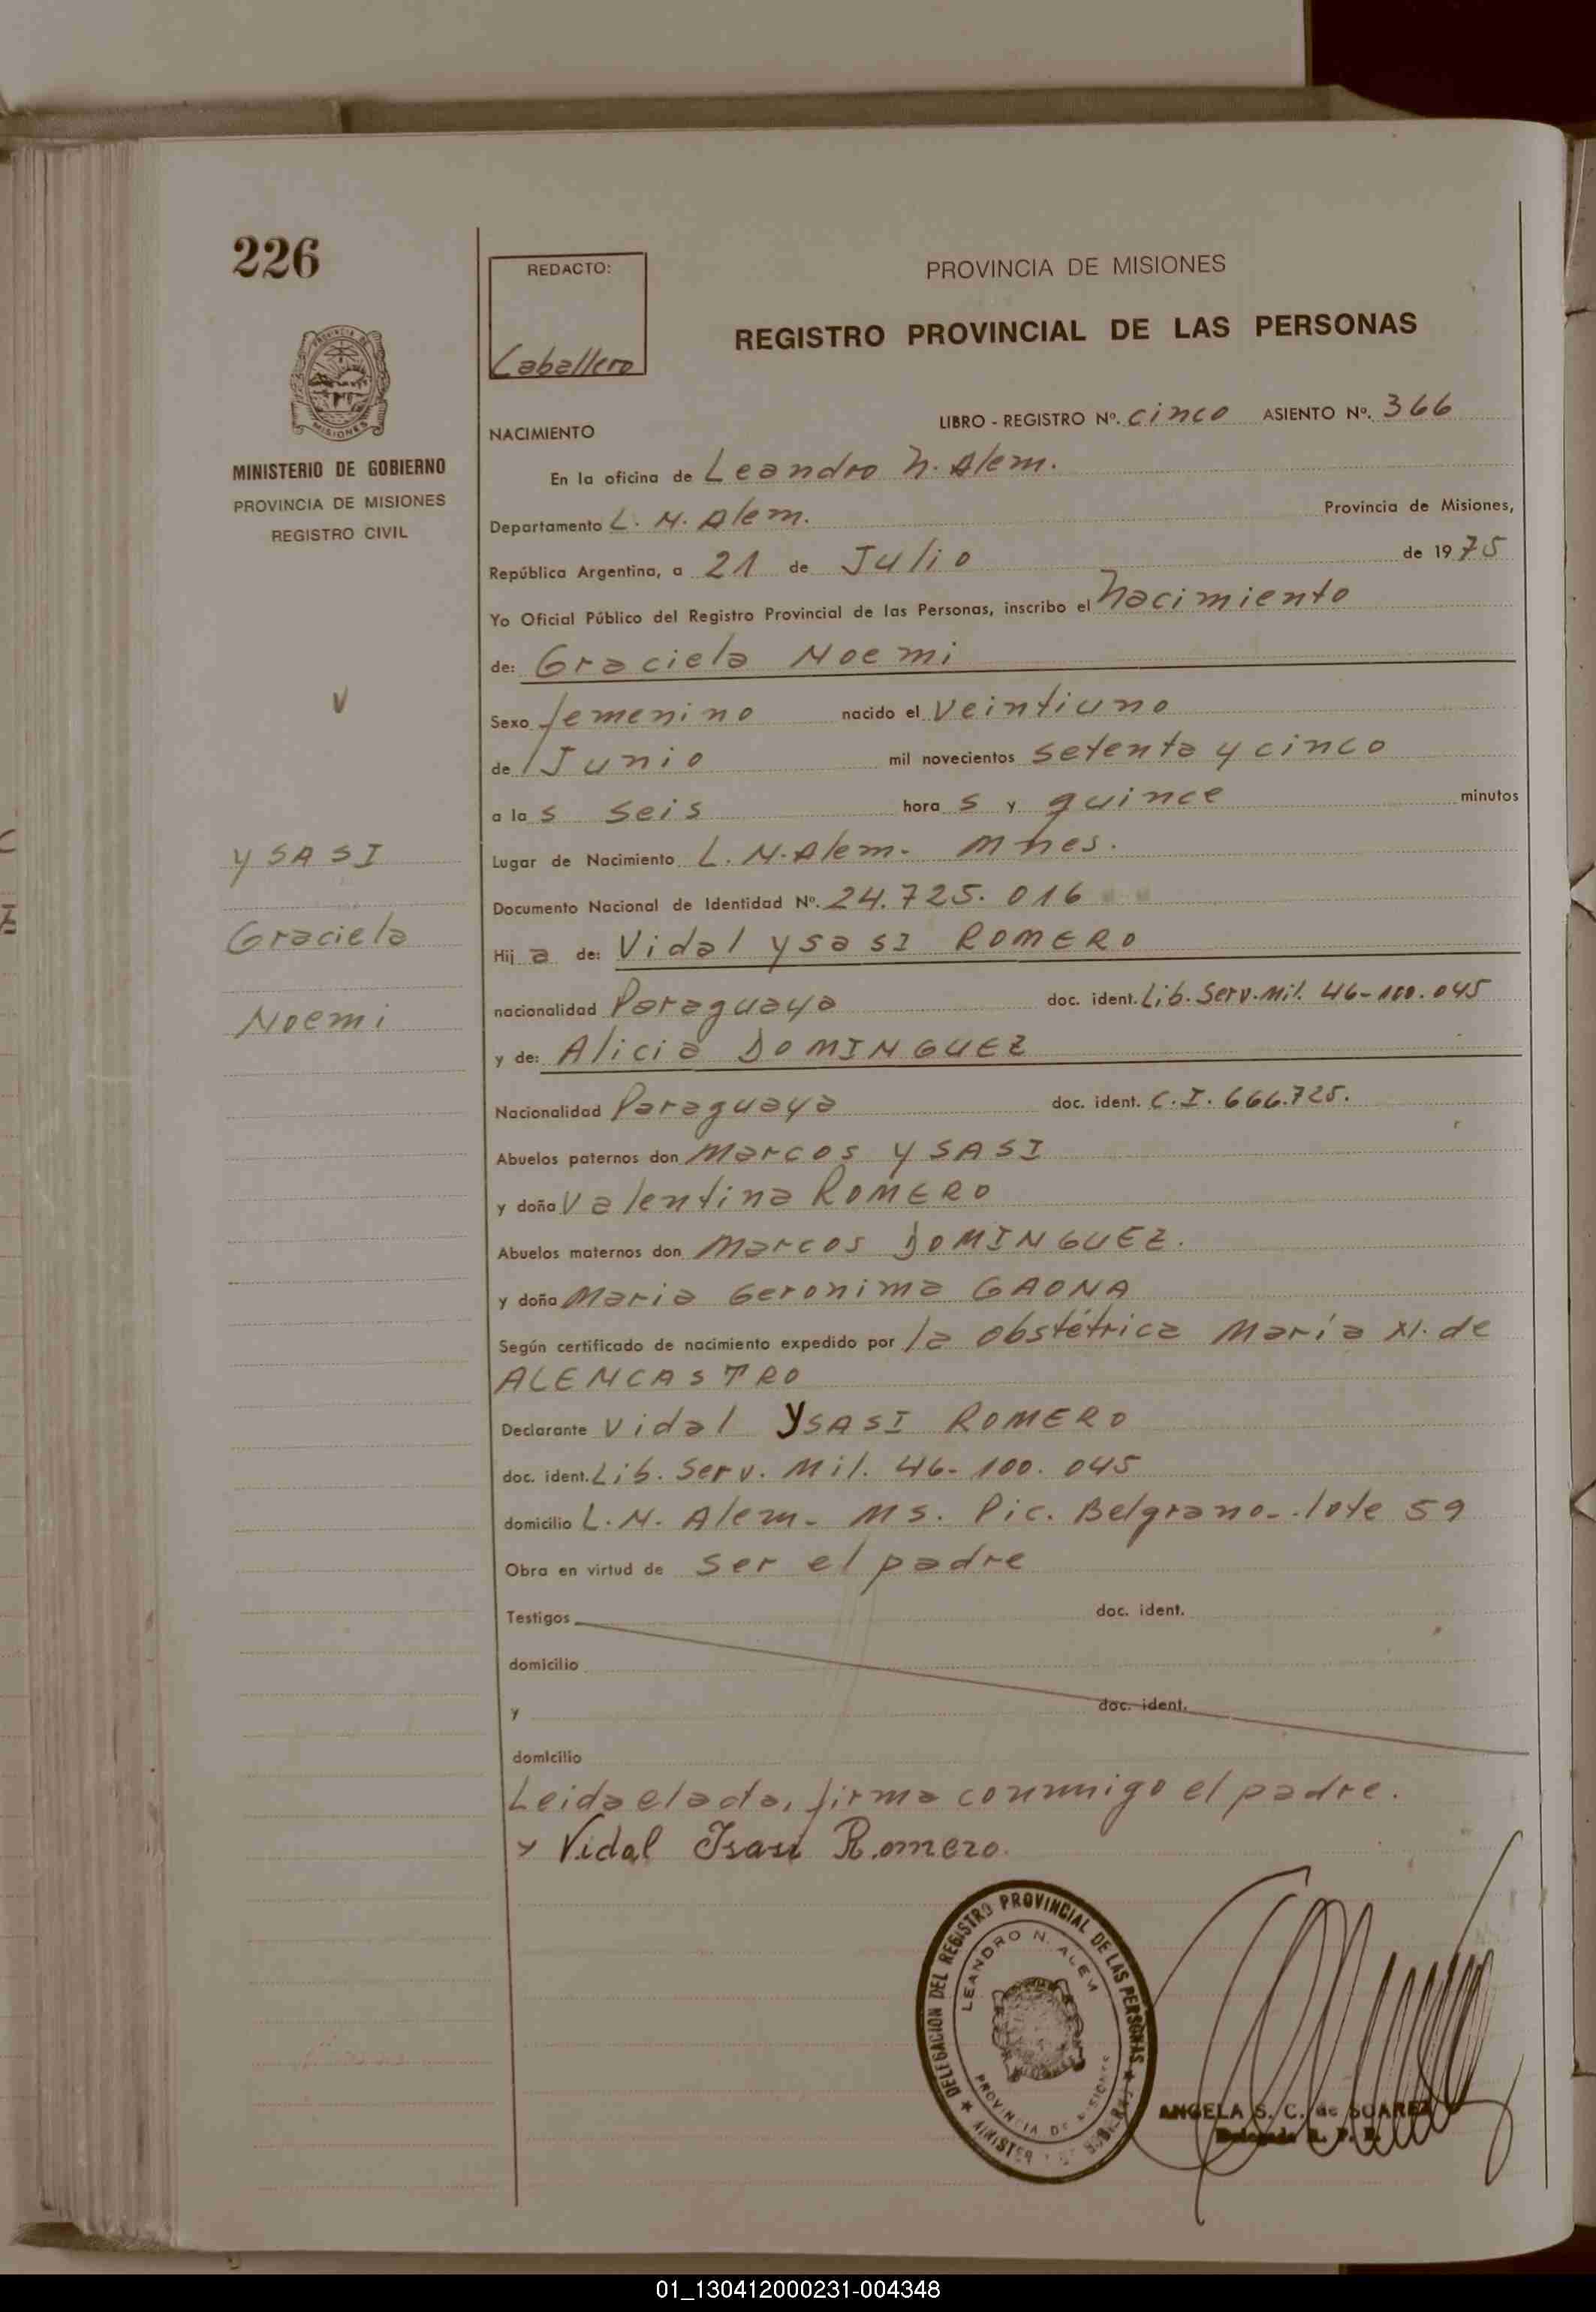 226
PROVINCIA DE MISIONES
MINISTERIO DE GOBIERNO
PROVINCIA DE MISIONES
REGISTRO CIVIL
V
YSASI
Graciela
Noemi
REDACTO:
Caballero
PROVINCIA DE MISIONES
REGISTRO PROVINCIAL DE LAS PERSONAS
LIBRO - REGISTRO Nº. cinco ASIENTO Nº. 366
NACIMIENTO
En la oficina de Leandro N. Alem.
Departamento L. N. Alem. Provincia de Misiones,
República Argentina, a 21 de Julio de 1975
Yo Oficial Público del Registro Provincial de las Personas, inscribo el Nacimiento
de: Graciela Noemi
Sexo femenino nacido el veintiuno
de Junio mil novecientos setenta y cinco
a las seis horas y quince minutos
Lugar de Nacimiento L. N. Alem. Mnes.
Documento Nacional de Identidad Nº. 24.725.016
Hija de: Vidal YsasI ROMERO
nacionalidad Paraguaya doc. ident. Lib. Serv. Mil. 46-100.045
y de: Alicia DOMINGUEZ
Nacionalidad Paraguaya doc. ident. C.I. 666.725.
Abuelos paternos don Marcos YSASI
y doña Valentina ROMERO
Abuelos maternos don Marcos DOMINGUEZ.
y doña Maria Geronima GAONA
Según certificado de nacimiento expedido por la obstétrica María N. de
ALENCASTRO
Declarante Vidal YSASI ROMERO
doc. ident. Lib. Serv. Mil. 46-100.045
domicilio L. N. Alem- Ms. Pic. Belgrano-.lote 59
Obra en virtud de ser el padre
Testigos doc. ident.
domicilio
y doc. ident.
domicilio
Leida el acta, firma conmigo el padre.
x Vidal Isasi Romero.
DELEGACION DEL REGISTRO PROVINCIAL DE LAS PERSONAS
LEANDRO N. ALEM
PROVINCIA DE MISIONES
ANGELA S. C. de SUAREZ
Delegada R. P. P.
01_130412000231-004348